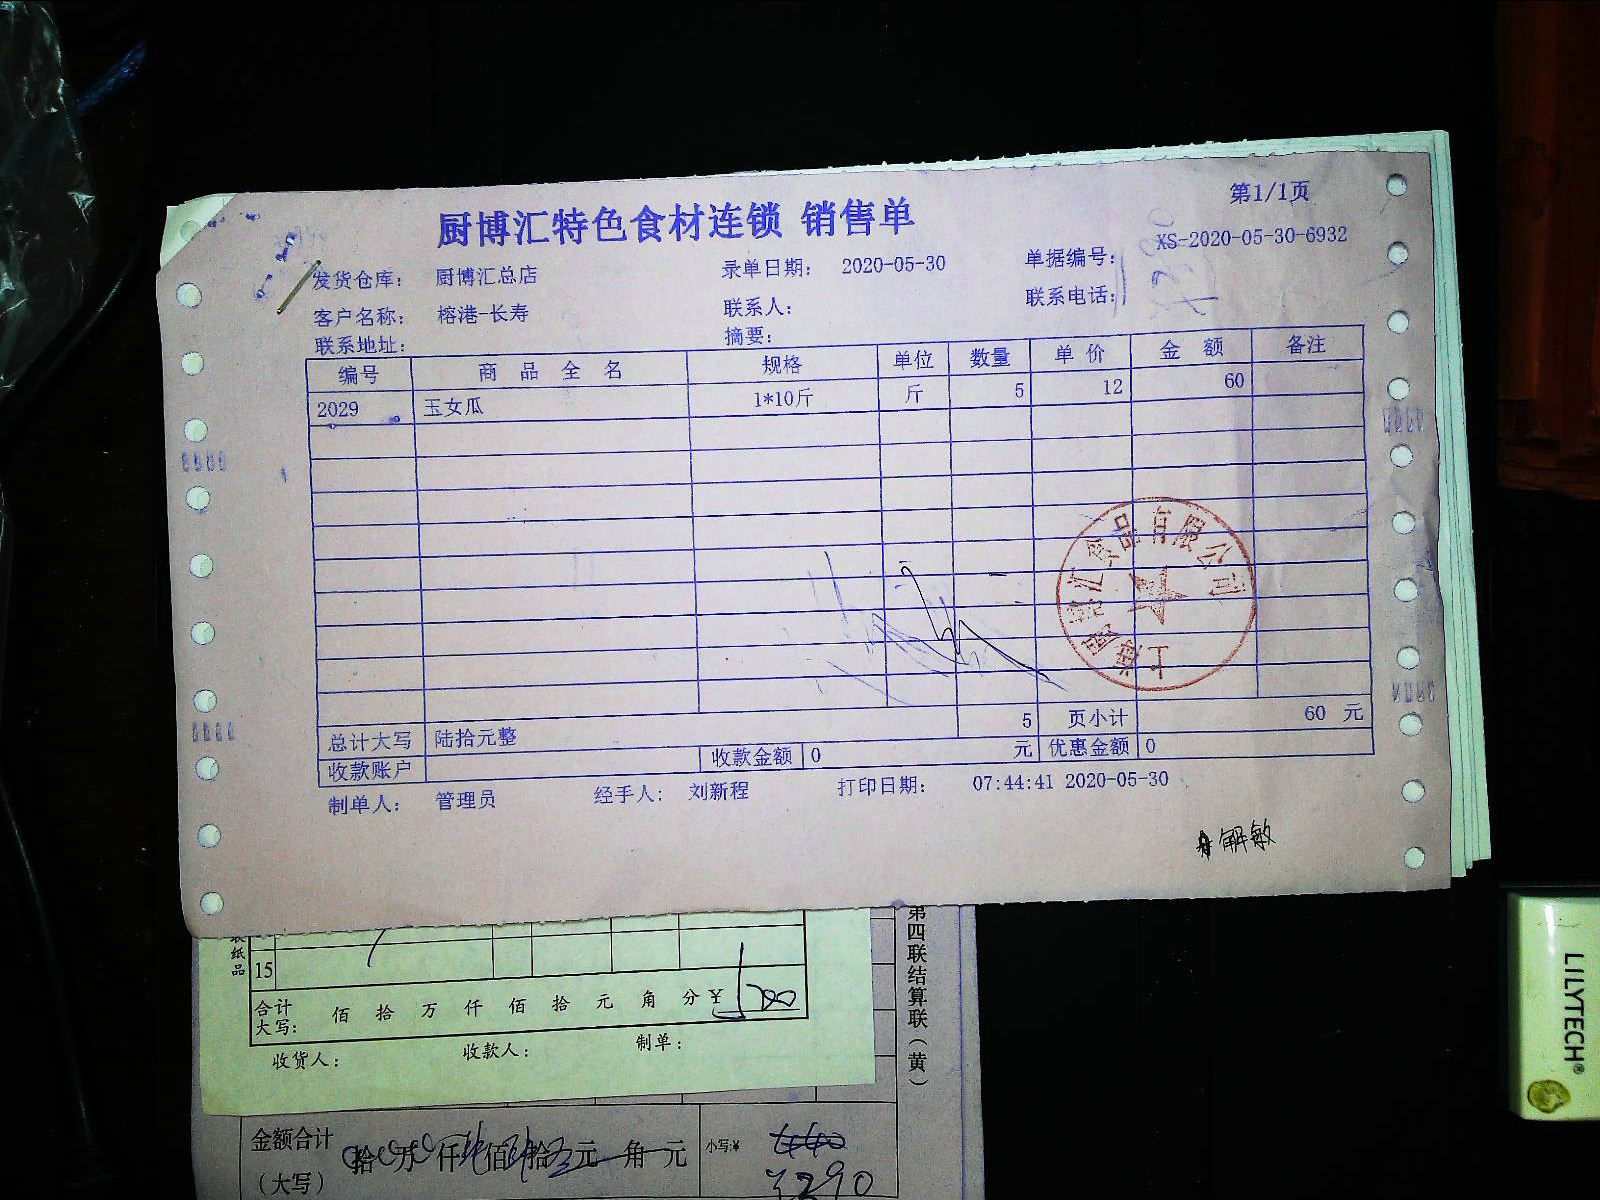 第1/1页
厨博汇特色食材连锁 销售单
发货仓库： 厨博汇总店 录单日期： 2020-05-30 单据编号： XS-2020-05-30-6932
客户名称： 榕港-长寿 联系人： 联系电话：
联系地址： 摘要：
编号 商品全名 规格 单位 数量 单价 金额 备注
2029 玉女瓜 1*10斤 斤 5 12 60
上海 博汇食品有限公司
总计大写 陆拾元整 5 页小计 60 元
收款账户 收款金额 0 元 优惠金额 0
制单人： 管理员 经手人： 刘新程 打印日期： 07:44:41 2020-05-30
解敏
纸品
15
合计大写： 佰 拾 万 仟 佰 拾 元 角 分 ¥
收货人： 收款人： 制单：
第四联结算联（黄）
金额合计（大写） 拾 万 仟 佰 拾 元 角 元 小写:¥
¥290
LILYTECH®